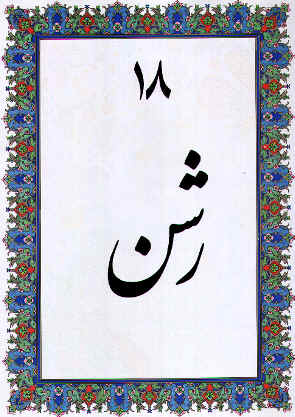 ۱۸
رشن